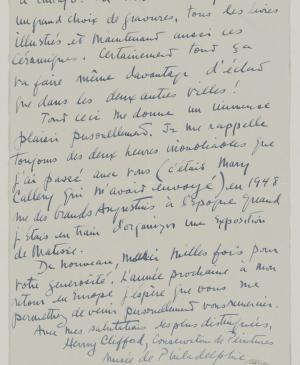 un grand choix de gravures, tous les livres
illustrés et maintenant aussi ces
céramiques. Certainement tout ça
va faire même davantage d'éclat
que dans les deux autres villes!
Tout ceci me donne un immense
plaisir personellement. Je me rappelle
toujours des deux heures inoubliables que
j'ai passé avec vous (c'était Mary
Callery qui m'avait envoyé) en 1948
rue des Grands Augustins à l'époque quand
j'étais en train d'organiser une exposition
de Matisse.
De nouveau, milles fois pour
votre générosité. L'année prochaine à mon
retour en Europe j'espère que vous me
permettrez de venir personellement vous remercier.
Avec mes salutations les plus distinguées,
Henry Clifford, Conservateur de Peintures
Musée de Philadelphie